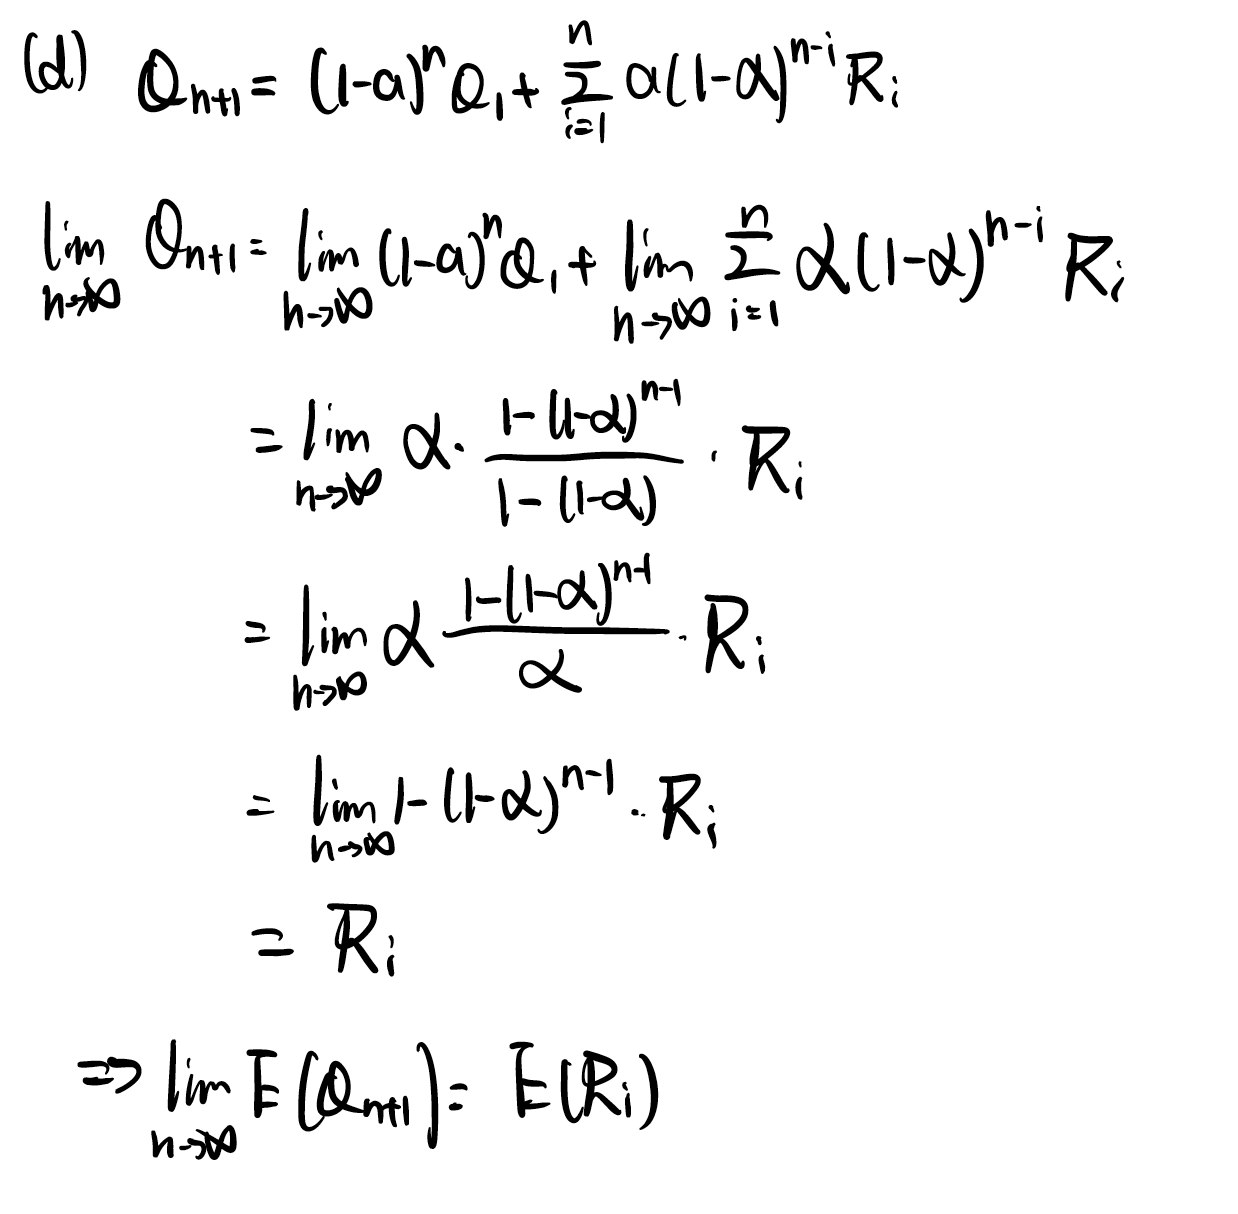 (d) Q_{n+1} = (1-a)^n Q_1 + \sum_{i=1}^{n} a(1-α)^{n-i} R_i
\lim_{n→∞} Q_{n+1} = \lim_{n→∞} (1-a)^n Q_1 + \lim_{n→∞} \sum_{i=1}^{n} α(1-α)^{n-i} R_i
= \lim_{n→∞} α · \frac{1-(1-α)^{n-1}}{1-(1-α)} · R_i
= \lim_{n→∞} α \frac{1-(1-α)^{n-1}}{α} · R_i
= \lim_{n→∞} 1-(1-α)^{n-1} · R_i
= R_i
⇒ \lim_{n→∞} E(Q_{n+1}) = E(R_i)